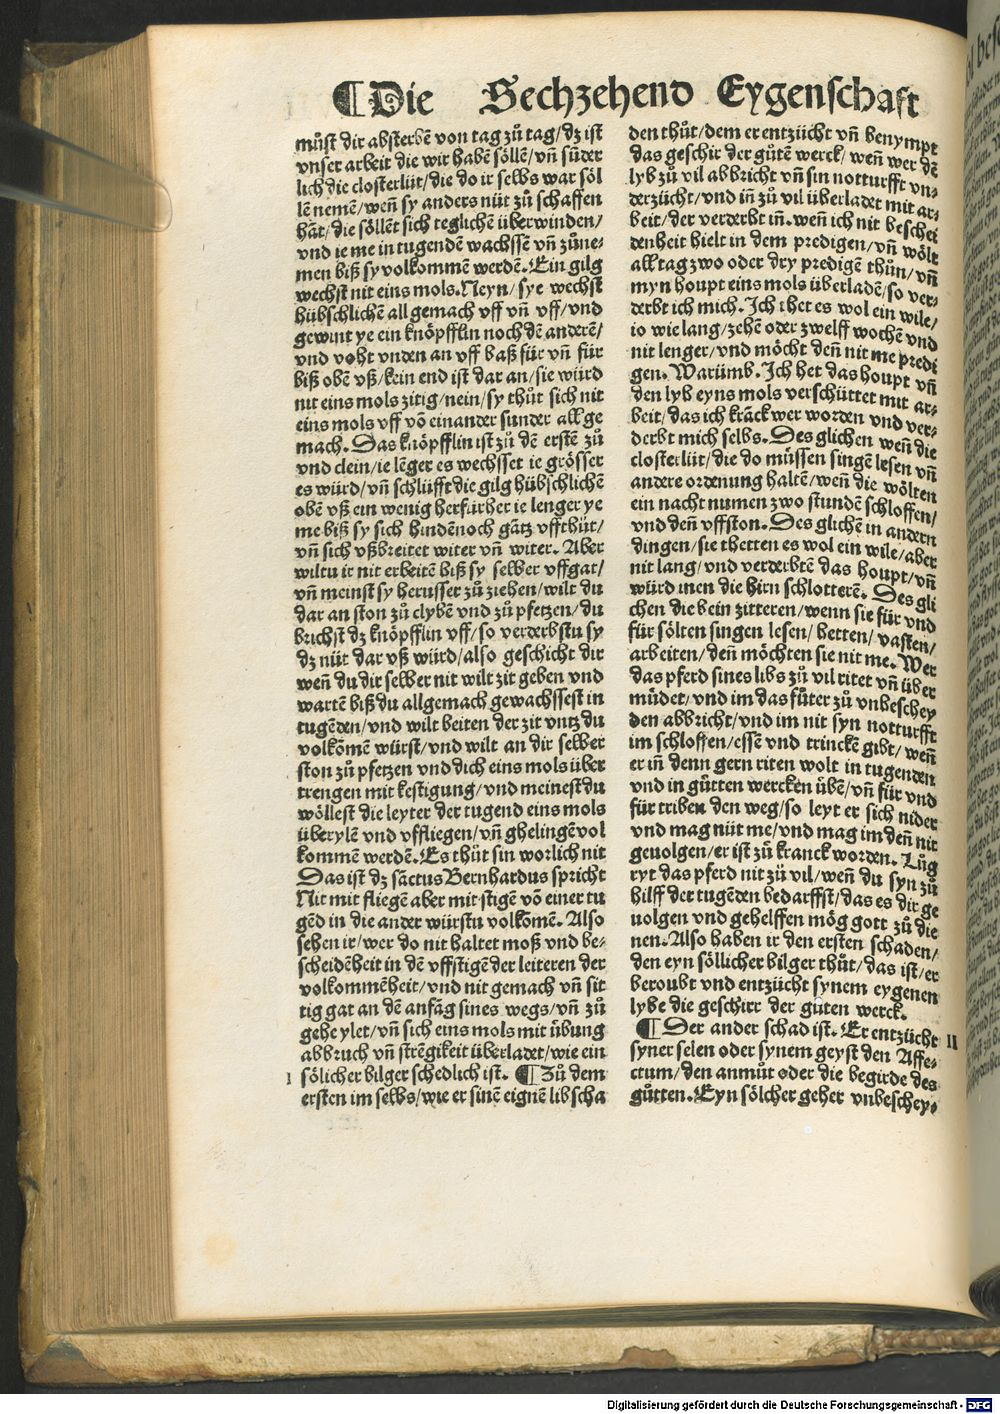 ¶Die Sechzehend Eygenschaft
můst dir absterbē von tag zů tag/dz ist
vnser arbeit die wir habē söllē/vn̄ sůder
lich die closterlüt/die do ir selbs war söl
lē nemē/wen̄ sy anders nüt zů schaffen
hāt/die söllēt sich teglichē überwinden/
vnd ie me in tugendē wachssē vn̄ zůne⸗
men biß sy volkommē werdē. Ein gilg
wechst nit eins mols. Neyn/sye wechst
hübschlichē all gemach vff vn̄ vff/vnd
gewint ye ein knöpfflin noch dē anderē/
vnd voht vnden an vff baß für vn̄ für
biß obē vß/kein end ist dar an/sie würd
nit eins mols zitig/nein/sy thůt sich nit
eins mols vff vō einander sunder all ge
mach. Das knöpfflin ist zů dē erstē zů
vnd clein/ie lēger es wechsset ie grösser
es würd/vn̄ schlüfft die gilg hübschlichē
obē vß ein wenig herfürher ie lenger ye
me biß sy sich hindēnoch gātz vffthüt/
vn̄ sich vßbreitet witer vn̄ witer. Aber
wiltu ir nit erbeitē biß sy selber vffgat/
vn̄ meinst sy herusser zů ziehen/wilt du
dar an ston zů clybē vnd zů pfetzen/du
brichst dz knöpfflin vff/so verderbstu sy
dz nüt dar vß würd/also geschicht dir
wen̄ du dir selber nit wilt zit geben vnd
wartē biß du allgemach gewachssest in
tugēden/vnd wilt beiten der zit vntz du
volkōmē würst/vnd wilt an dir selber
ston zů pfetzen vnd dich eins mols über
trengen mit kestigung/vnd meinest du
wöllest die leyter der tugend eins mols
überylē vnd vffliegen/vn̄ ghelingē vol
kommē werdē. Es thůt sin worlich nit
Das ist dz sāctus Bernhardus spricht
Nit mit fliegē aber mit stigē vō einer tu
gēd in die ander würstu volkōmē. Also
sehen ir/wer do nit haltet moß vnd be⸗
scheidēheit in dē vffstigē der leiteren der
volkommēheit/vnd nit gemach vn̄ sit
tig gat an dē anfāg sines wegs/vn̄ zů
gehe ylet/vn̄ sich eins mols mit übung
abbruch vn̄ strēgikeit überladet/wie ein
I sölicher bilger schedlich ist. ¶Zů dem
ersten im selbs/wie er sinē eignē lib scha
den thůt/dem er entzücht vn̄ benympt
das geschir der gůtē werck/wen̄ wer dē
lyb zů vil abbricht vn̄ sin notturfft vn⸗
derzücht/vnd in̄ zů vil überladet mit ar⸗
beit/der verderbt in̄. wen̄ ich nit beschei
denheit hielt in dem predigen/vn̄ wölt
all tag zwo oder dry predigē thůn/vn̄
myn houpt eins mols überladē/so ver⸗
derbt ich mich. Ich thet es wol ein wile/
io wie lang/zehē oder zwelff wochē vnd
nit lenger/vnd möcht den̄ nit me predi
gen. Warumb. Ich het das houpt vn̄
den lyb eyns mols verschüttet mit ar⸗
beit/das ich krāck wer worden vnd ver⸗
derbt mich selbs. Des glichen wen̄ die
closterlüt/die do müssen singē lesen vn̄
andere ordenung haltē/wen̄ die wölten
ein nacht numen zwo stundē schloffen/
vnd den̄ vffston. Des glichē in andern
dingen/sie thetten es wol ein wile/aber
nit lang/vnd verderbtē das houpt/vn̄
würd inen die hirn schlotterē. Des gli
chen die bein zitteren/wenn sie für vnd
für sölten singen lesen/betten/vasten/
arbeiten/den̄ möchten sie nit me. Wer
das pferd sines libs zů vil ritet vn̄ über
müdet/vnd im das fůter zů vnbeschey
den abbricht/vnd im nit syn notturfft
im schloffen/essē vnd trinckē gibt/wen̄
er in̄ denn gern riten wolt in tugenden
vnd in gůtten wercken übē/vn̄ für vnd
für triben den weg/so leyt er sich nider
vnd mag nüt me/vnd mag im den̄ nit
geuolgen/er ist zů kranck worden. Lůg
ryt das pferd nit zů vil/wen̄ du syn zů
hilff der tugēden bedarffst/das es dir ge
uolgen vnd gehelffen mög gott zů die
nen. Also haben ir den ersten schaden/
den eyn söllicher bilger thůt/das ist/er
beroubt vnd entzücht synem eygenen
lybe die geschirr der gůten werck.
¶Der ander schad ist. Er entzücht II
syner selen oder synem geyst den Affe⸗
ctum/den anmůt oder die begirde des
gůtten. Eyn sölcher geher vnbeschey⸗
Digitalisierung gefördert durch die Deutsche Forschungsgemeinschaft - DFG